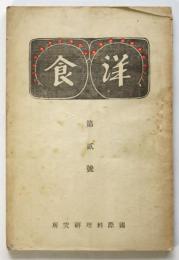 洋食
第貳號
國際料理研究所